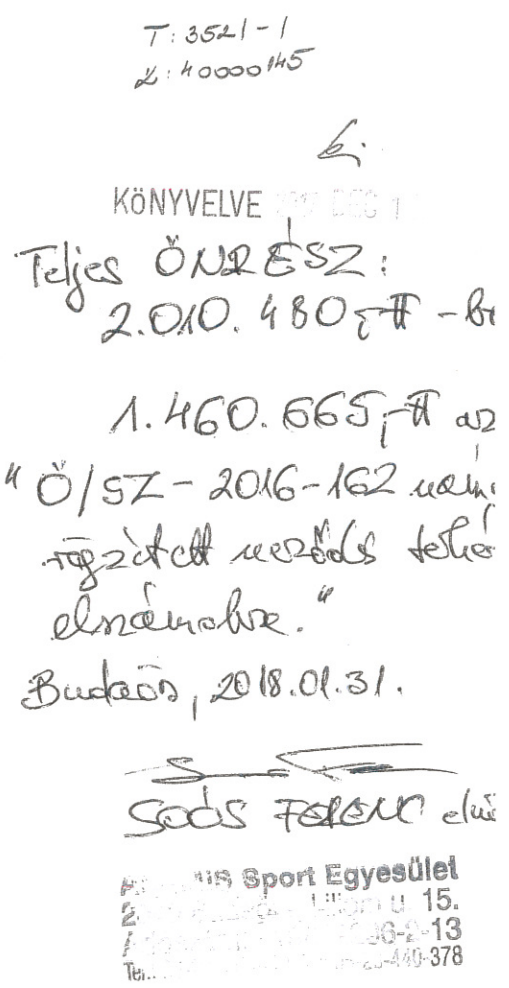 T: 3521-1
K: 40000145
KÖNYVELVE 2017 DEC 1
Teljes ÖNRÉSZ:
2.010.480,-Ft -br
1.460.665,-Ft az
"Ö/SZ-2016-162
rögzített terhé
elszámolva."
Budaörs, 2018.01.31.
SOÓS FERENC eln
Sport Egyesület
u. 15.
6-2-13
-440-378